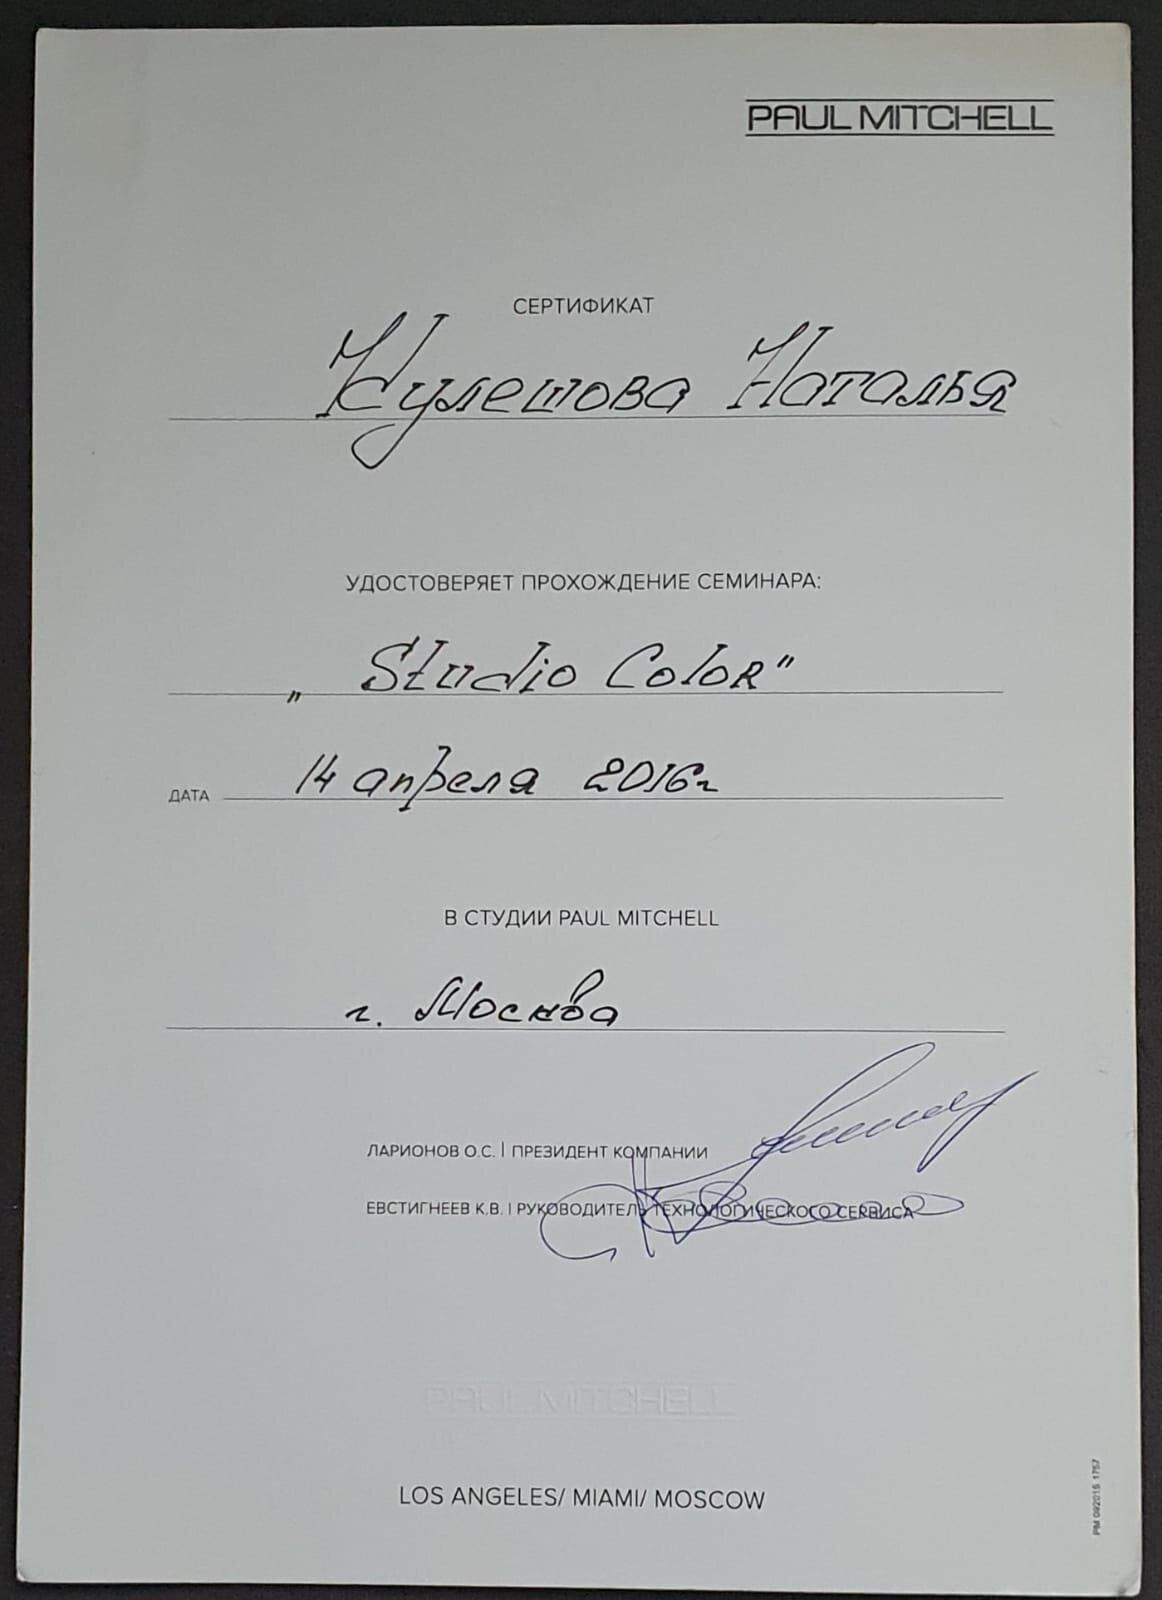 PAUL MITCHELL
СЕРТИФИКАТ
Кулешова Наталья
УДОСТОВЕРЯЕТ ПРОХОЖДЕНИЕ СЕМИНАРА:
„ Studio Color"
ДАТА 14 апреля 2016г
В СТУДИИ PAUL MITCHELL
г. Москва
ЛАРИОНОВ О.С. | ПРЕЗИДЕНТ КОМПАНИИ
ЕВСТИГНЕЕВ К.В. | РУКОВОДИТЕЛЬ ТЕХНОЛОГИЧЕСКОГО СЕРВИСА
PAUL MITCHELL
LOS ANGELES/ MIAMI/ MOSCOW
PM 092015 1757